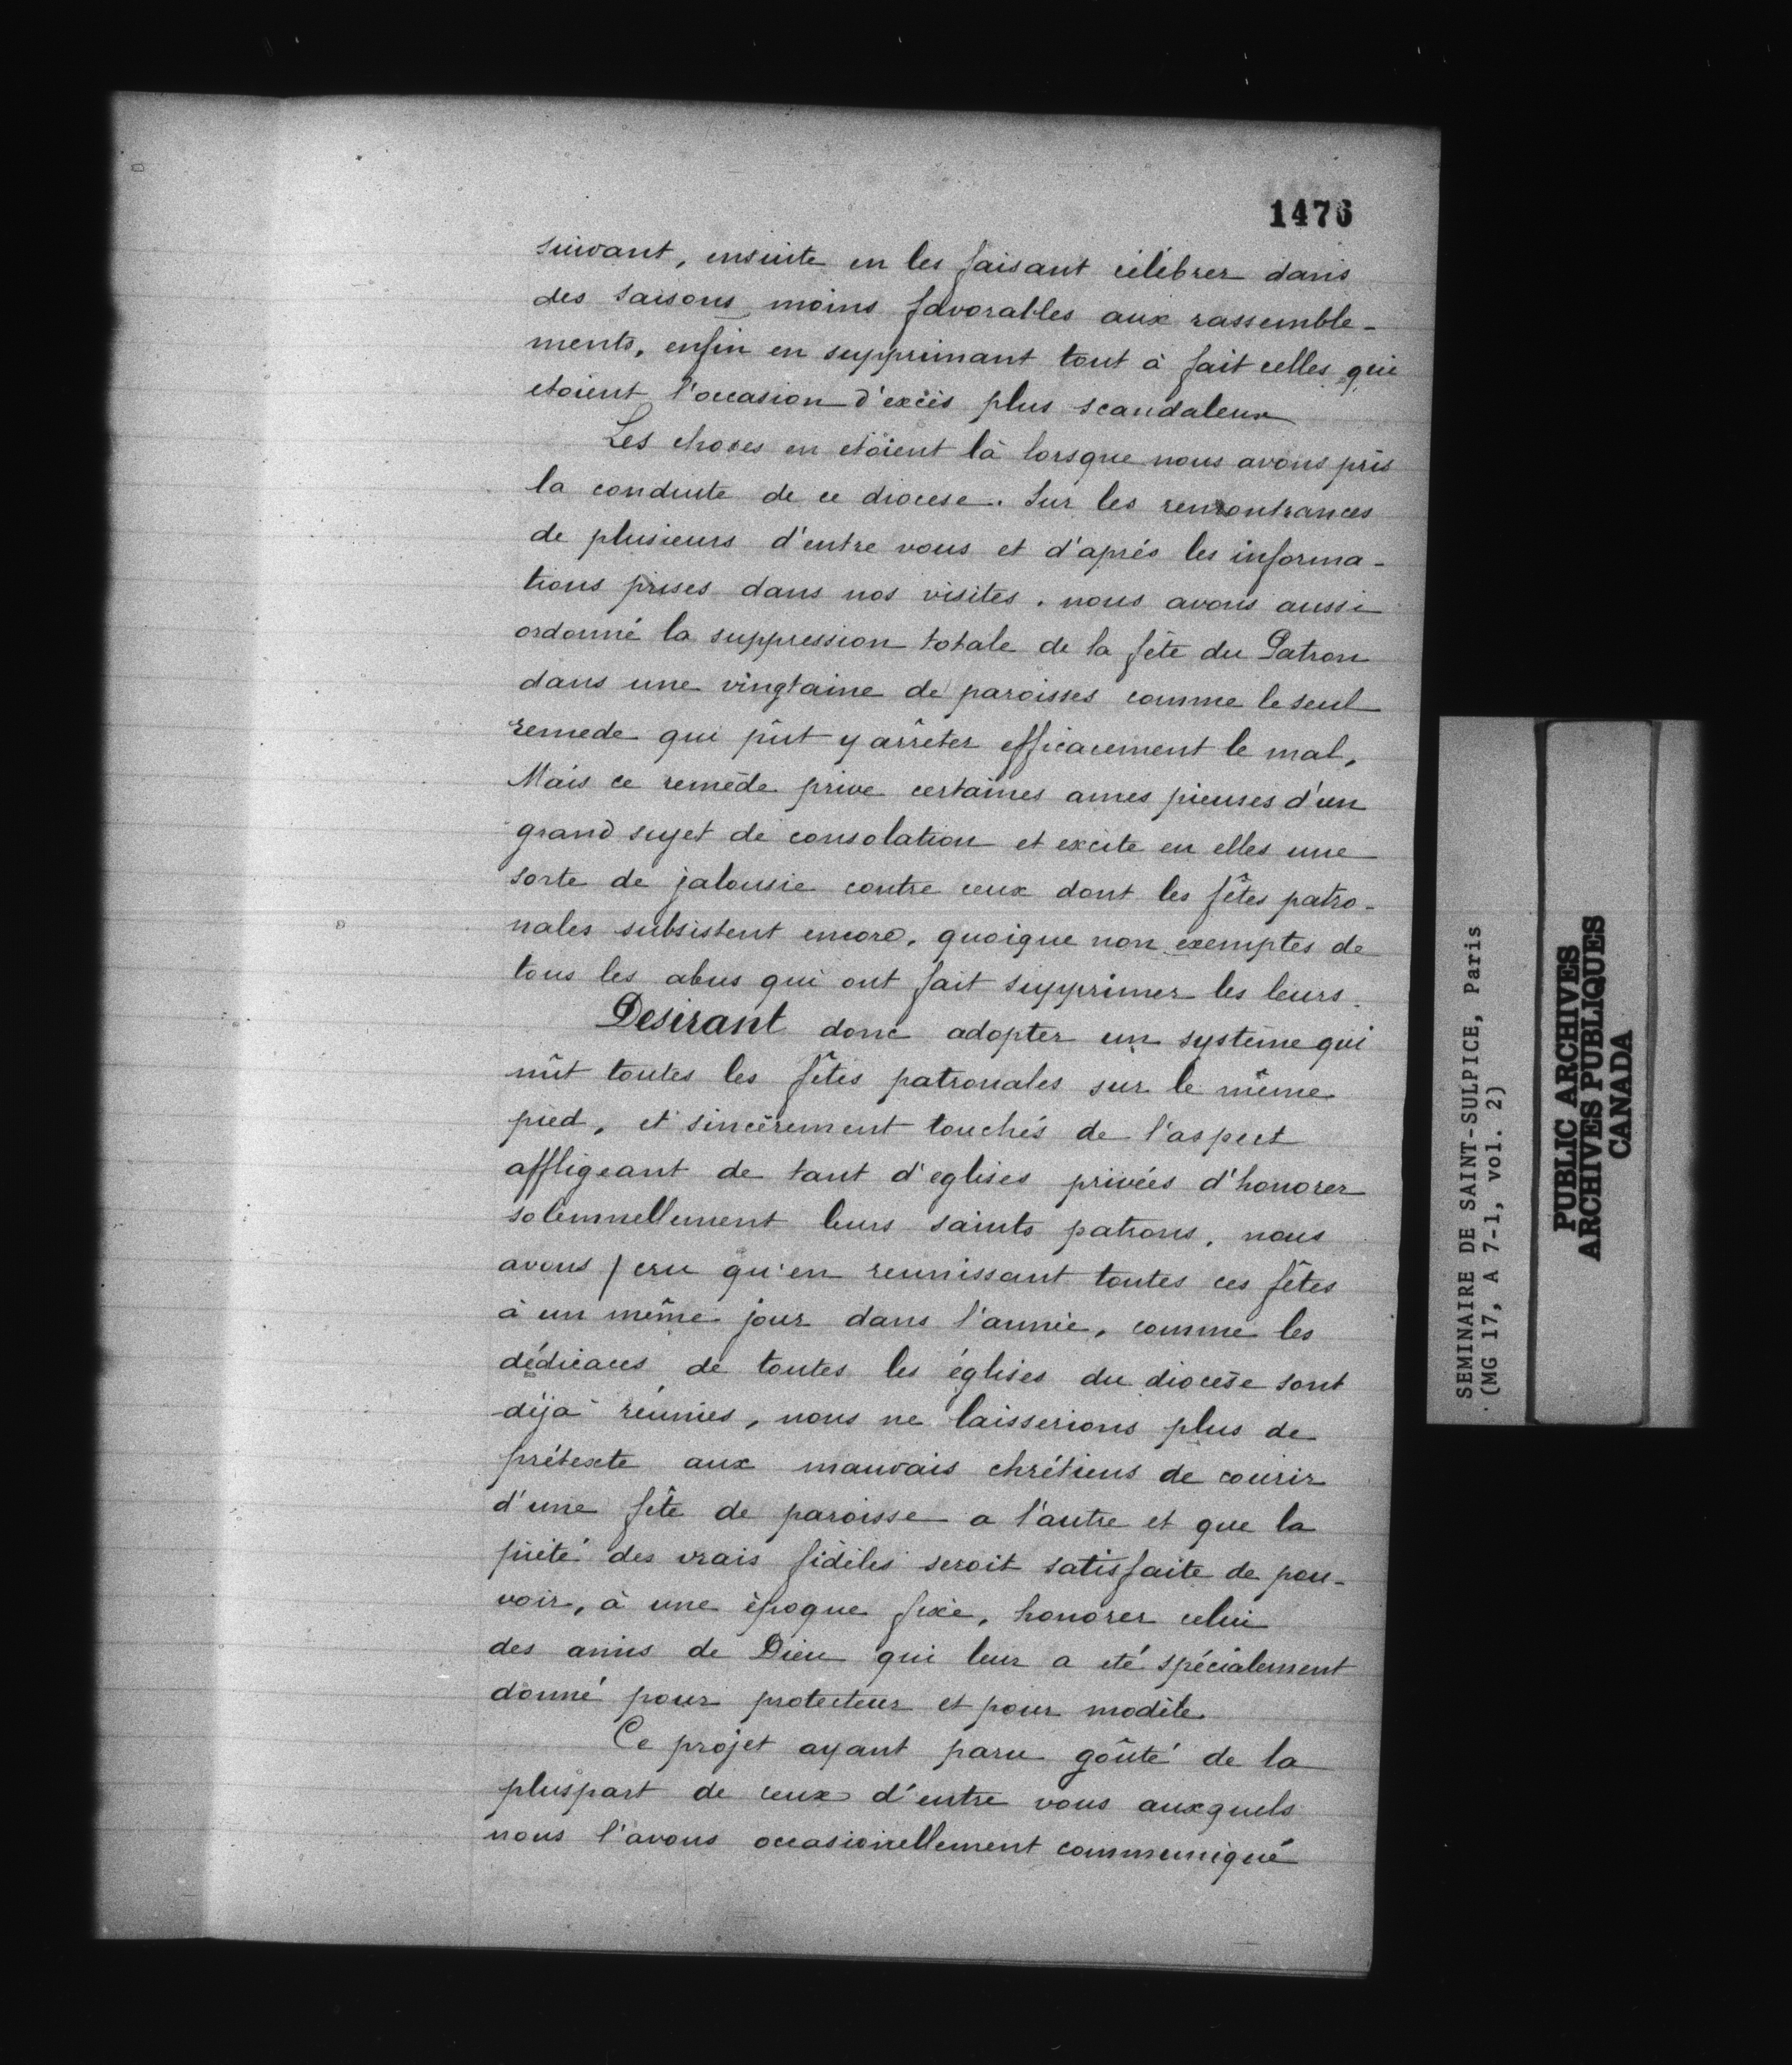 1476
suivant, ensuite en les faisant célébrer dans
des saisons moins favorables aux rassemble-
ments, enfin en supprimant tout à fait celles qui
etoient l'occasion d'excès plus scandaleux
Les choses en etoient là lorsque nous avons pris
la conduite de ce diocese. Sur les remontrances
de plusieurs d'entre vous et d'après les informa-
tions prises dans nos visites. nous avons aussi
ordonné la suppression totale de la fête du Patron
dans une vingtaine de paroisses comme le seul
remede qui pût y arrêter efficacement le mal,
Mais ce remède prive certaines ames pieuses d'un
grand sujet de consolation et excite en elles une
sorte de jalousie contre ceux dont les fêtes patro-
nales subsistent encore, quoique non exemptes de
tous les abus qui ont fait supprimer les leurs.
Desirant donc adopter un système qui
mît toutes les fêtes patronales sur le même
pied, et sincèrement touchés de l'aspect
affligeant de tant d'eglises privées d'honorer
solemnellement leurs saints patrons, nous
avons / cru qu'en reunissant toutes ces fêtes
à un même jour dans l'année, comme les
dédicaces de toutes les églises du diocèse sont
déja réunies, nous ne laisserions plus de
prétexte aux mauvais chrétiens de courir
d'une fête de paroisse a l'autre et que la
piété des vrais fidèles seroit satisfaite de pou-
voir, à une époque fixe, honorer celui
des amis de Dieu qui leur a eté spécialement
donné pour protecteur et pour modèle.
Ce projet ayant paru goûté de la
pluspart de ceux d'entre vous auxquels
nous l'avons occasionellement communiqué
SEMINAIRE DE SAINT-SULPICE, Paris
(MG 17, A 7-1, vol. 2)
PUBLIC ARCHIVES
ARCHIVES PUBLIQUES
CANADA